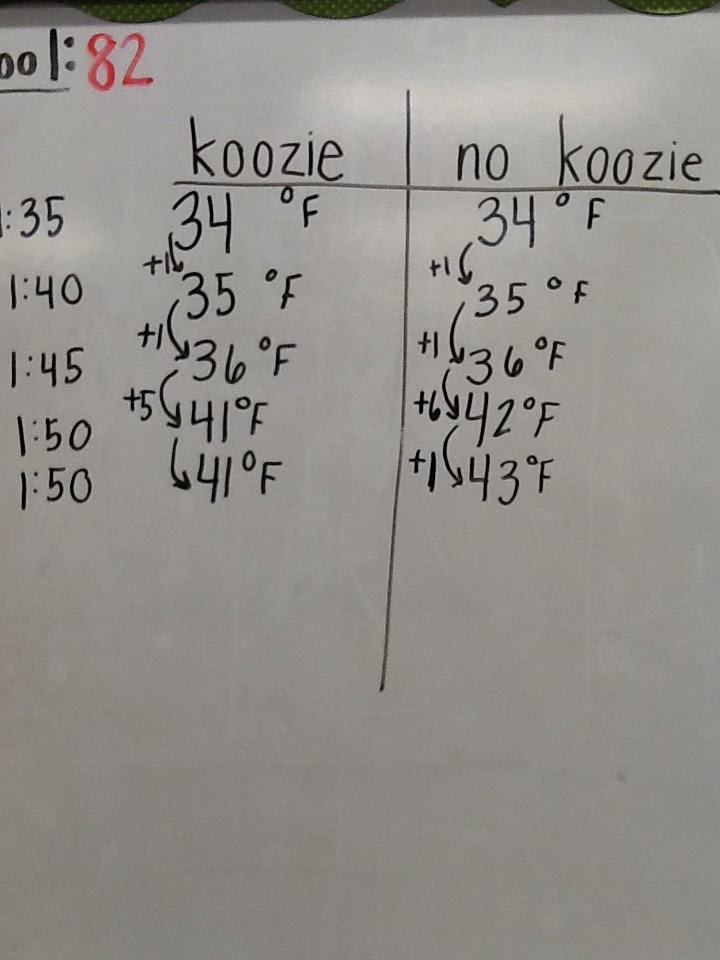 ool: 82
koozie no koozie
1:35 34 °F 34 °F
+1 +1
1:40 35 °F 35 °F
+1 +1
1:45 36 °F 36 °F
+5 +6
1:50 41°F 42°F
+1
1:50 41°F 43°F